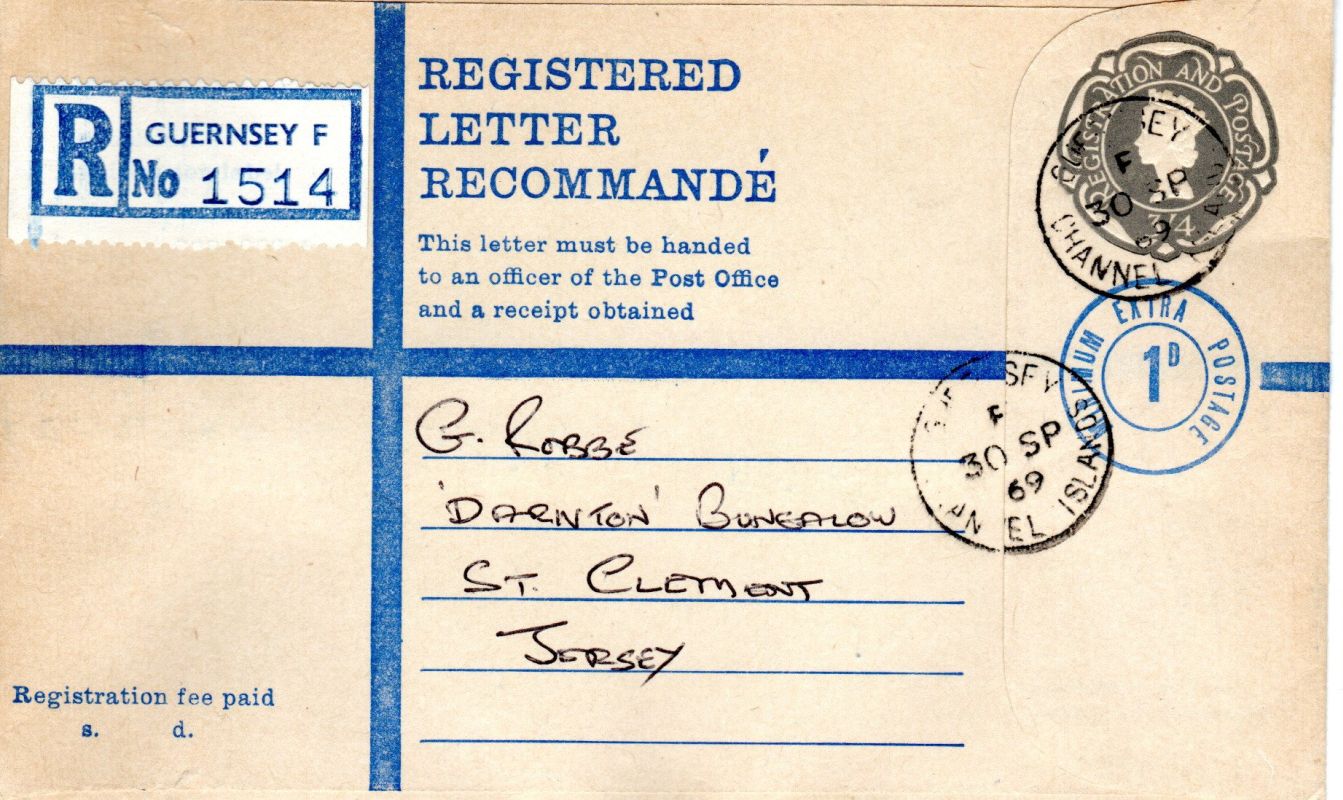 REGISTERED
LETTER
RECOMMANDÉ
This letter must be handed
to an officer of the Post Office
and a receipt obtained
R
GUERNSEY F
No 1514
REGISTRATION AND POSTAGE
3/4
GUERNSEY
F
30 SP
69
CHANNEL ISLANDS
MINIMUM EXTRA POSTAGE
1D
GUERNSEY
F
30 SP
69
CHANNEL ISLANDS
G. ROBBÉ
'DARNTON' BUNGALOW
ST. CLEMENT
JERSEY
Registration fee paid
s. d.